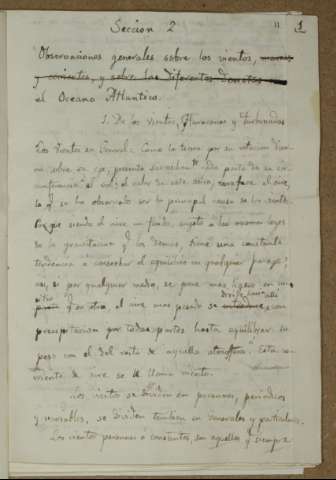 Seccion 2
11 1
Observaciones generales sobre los vientos, mareas
y corrientes, y sobre las diferentes derrotas en
el Oceano Atlantico.
1. De los vientos, Huracanes y turbonadas
Los Vientos en General. Como la tierra por su rotacion diur-
na sobre su eje, presenta sucesivam.te cada parte de su
al sol; el calor de este astro, rareface el aire,
lo q.e se ha observado ser la principal causa de los vientos
Porque siendo el aire un fluido, sujeto a las mismas leyes
de la gravitacion q.e los demas, tiene una constante
tendencia a conservar el equilibrio en qualquier parage;
asi, si por qualquier medio, se pone mas ligero en un
sitio q.e en otro, el aire mas pesado se dirije hacia alli con
precipitacion por todas partes hasta equilibrar su
peso con el del resto de aquella atmosfera. Esta cor-
riente de aire se le llama viento.
Los vientos se dividen en perennes, periodicos
y variables, se dividen tambien en generales y particulares.
Los vientos perennes o constantes, son aquellos q.e siempre